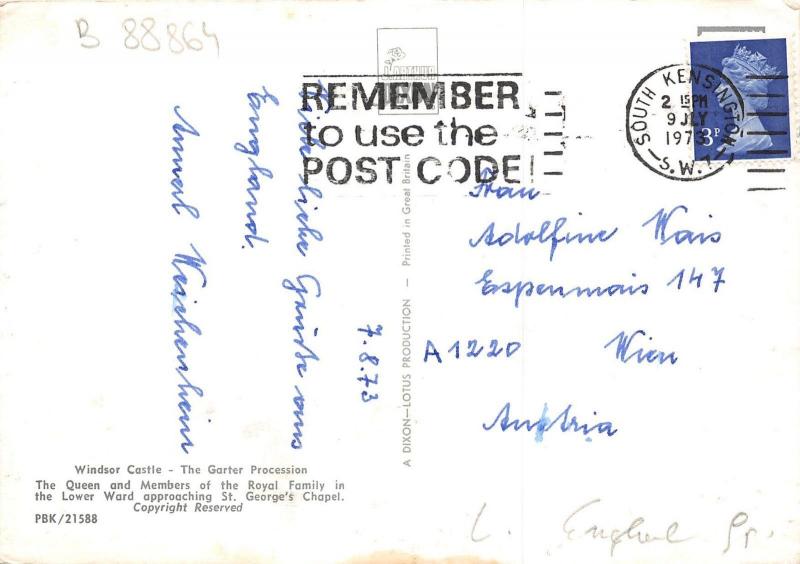 B 88864
J. ARTHUR
REMEMBER
to use the
POST CODE!
SOUTH KENSINGTON
2 15PM
9 JLY
1973
S.W.7
3P
7.8.73
Herzliche Grüße aus
England.
Frau
Adolfine Wais
Espenmais 147
A1220 Wien
Austria
A DIXON—LOTUS PRODUCTION — Printed in Great Britain
Windsor Castle - The Garter Procession
The Queen and Members of the Royal Family in
the Lower Ward approaching St. George's Chapel.
Copyright Reserved
PBK/21588